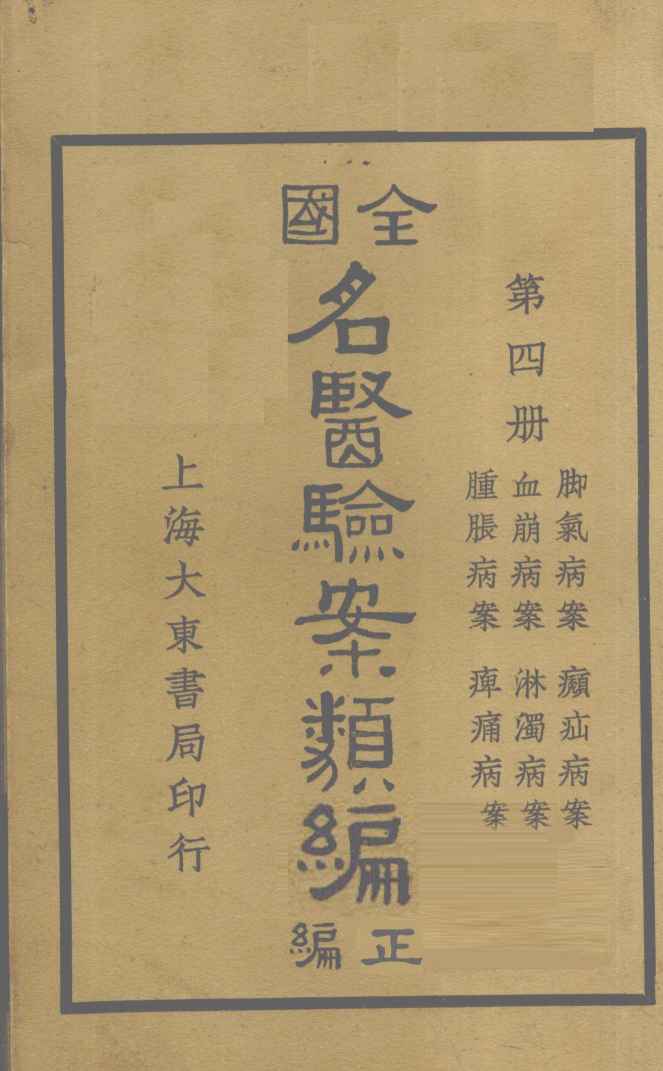 第四册
脚氣病案 癩疝病案
血崩病案 淋濁病案
腫脹病案 痺痛病案
全國
名醫驗案類編
正編
上海大東書局印行